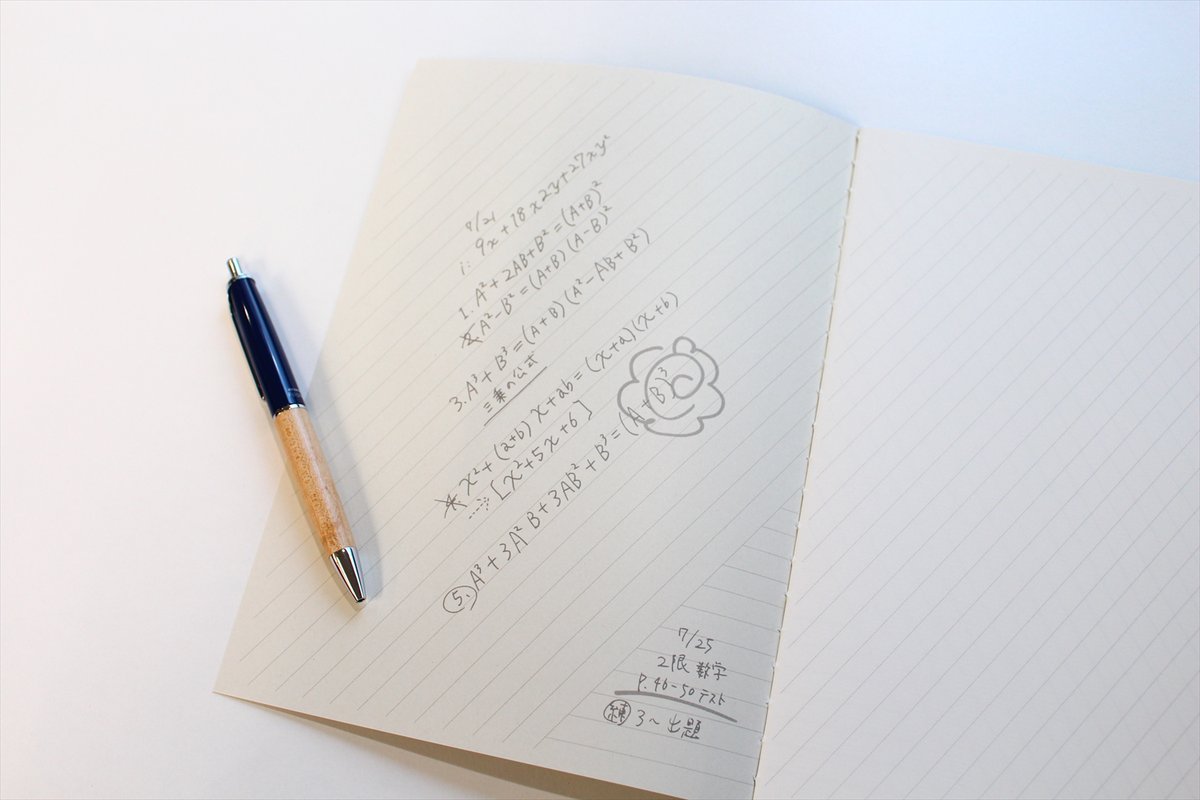 7/21
i: 9x+18x2y+27xy²
1. A²+2AB+B²=(A+B)²
2. A²-B²=(A+B)(A-B)²
3. A³+B³=(A+B)(A²-AB+B²)
三乗の公式
x²+(a+b)x+ab=(x+a)(x+b)
[x²+5x+6]
5. A³+3A²B+3AB²+B³=(A+B)³
7/25
2限 数学
P.46-50テスト
練 3~出題